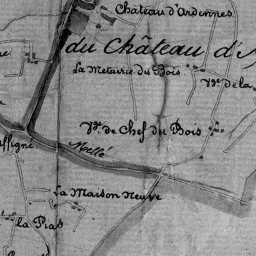 Château d'Ardennes
du Château d'
La Metairie du Bois
Vge de la
Vge de Chef du Bois
Mellé
La Maison Neuve
la Plas